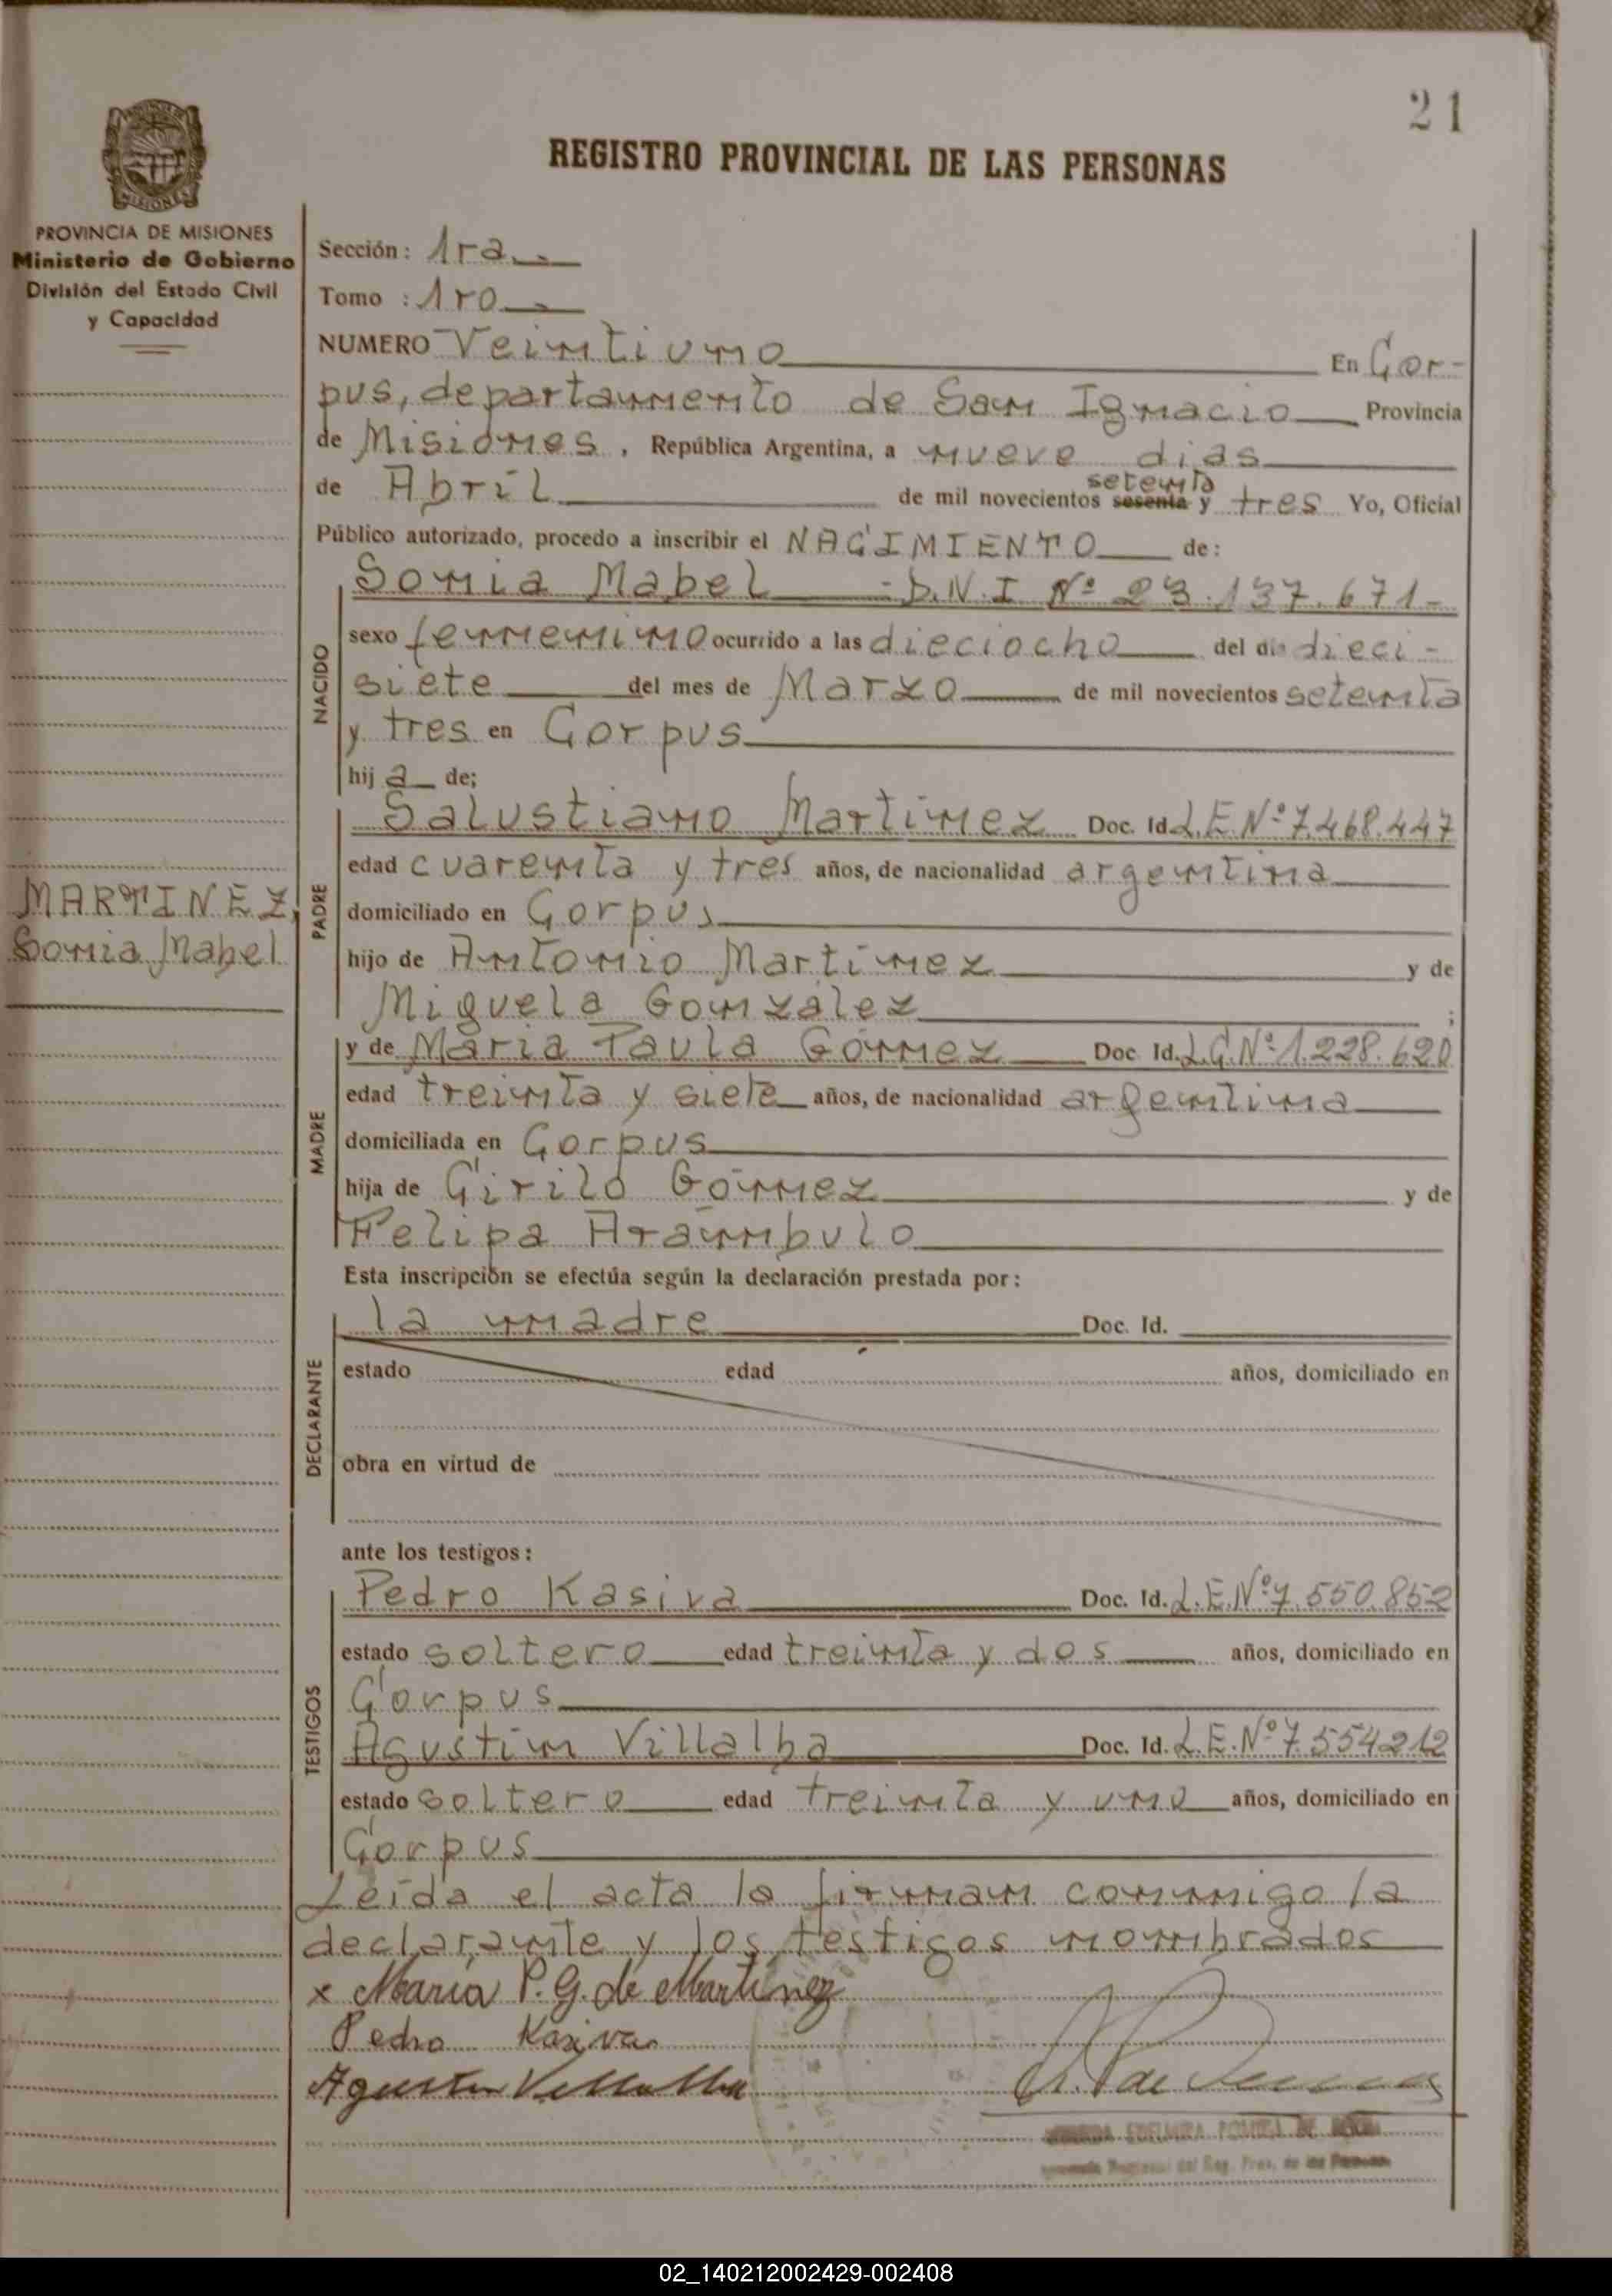 21
REGISTRO PROVINCIAL DE LAS PERSONAS
MISIONES
PROVINCIA DE MISIONES
Ministerio de Gobierno
División del Estado Civil
y Capacidad
Sección: 1ra
Tomo : 1ro
NUMERO Veintiuno En Cor-
pus, departamento de San Ignacio Provincia
de Misiones, República Argentina, a nueve dias
de Abril de mil novecientos sesenta setenta y tres Yo, Oficial
Público autorizado, procedo a inscribir el NACIMIENTO de:
NACIDO
Sonia Mabel D.N.I Nº 23.137.671-
sexo femenino ocurrido a las dieciocho del día dieci-
siete del mes de Marzo de mil novecientos setenta
y tres en Corpus
hija de;
PADRE
Salustiano Martinez Doc. Id L.E Nº 7.468.447
edad cuarenta y tres años, de nacionalidad argentina
MARTINEZ,
Sonia Mabel
domiciliado en Corpus
hijo de Antonio Martinez y de
Miguela González ;
MADRE
y de María Paula Gómez Doc Id. L.C.Nº 1.228.620
edad treinta y siete años, de nacionalidad argentina
domiciliada en Corpus
hija de Cirilo Gómez y de
Felipa Arámbulo
Esta inscripción se efectúa según la declaración prestada por:
DECLARANTE
la madre Doc. Id.
estado edad años, domiciliado en
obra en virtud de
ante los testigos:
TESTIGOS
Pedro Kasiva Doc. Id. L.E.Nº 7.550.852
estado soltero edad treinta y dos años, domiciliado en
Corpus
Agustin Villalba Doc. Id. L.E.Nº 7.554.212
estado soltero edad treinta y uno años, domiciliado en
Corpus
Leída el acta la firman conmigo la
declarante y los testigos nombrados
x María P. G. de Martínez
Pedro Kasiva
Agustin Villalba
02_140212002429-002408